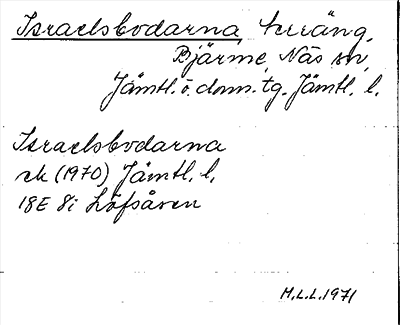 Israelsbodarna, terräng,
Bjärme, Näs sn,
Jämtl. ö. dom. tg. Jämtl. l.
Israelsbodarna
ek (1970) Jämtl. l.
18E 8i Löfsåsen
M.L.L. 1971